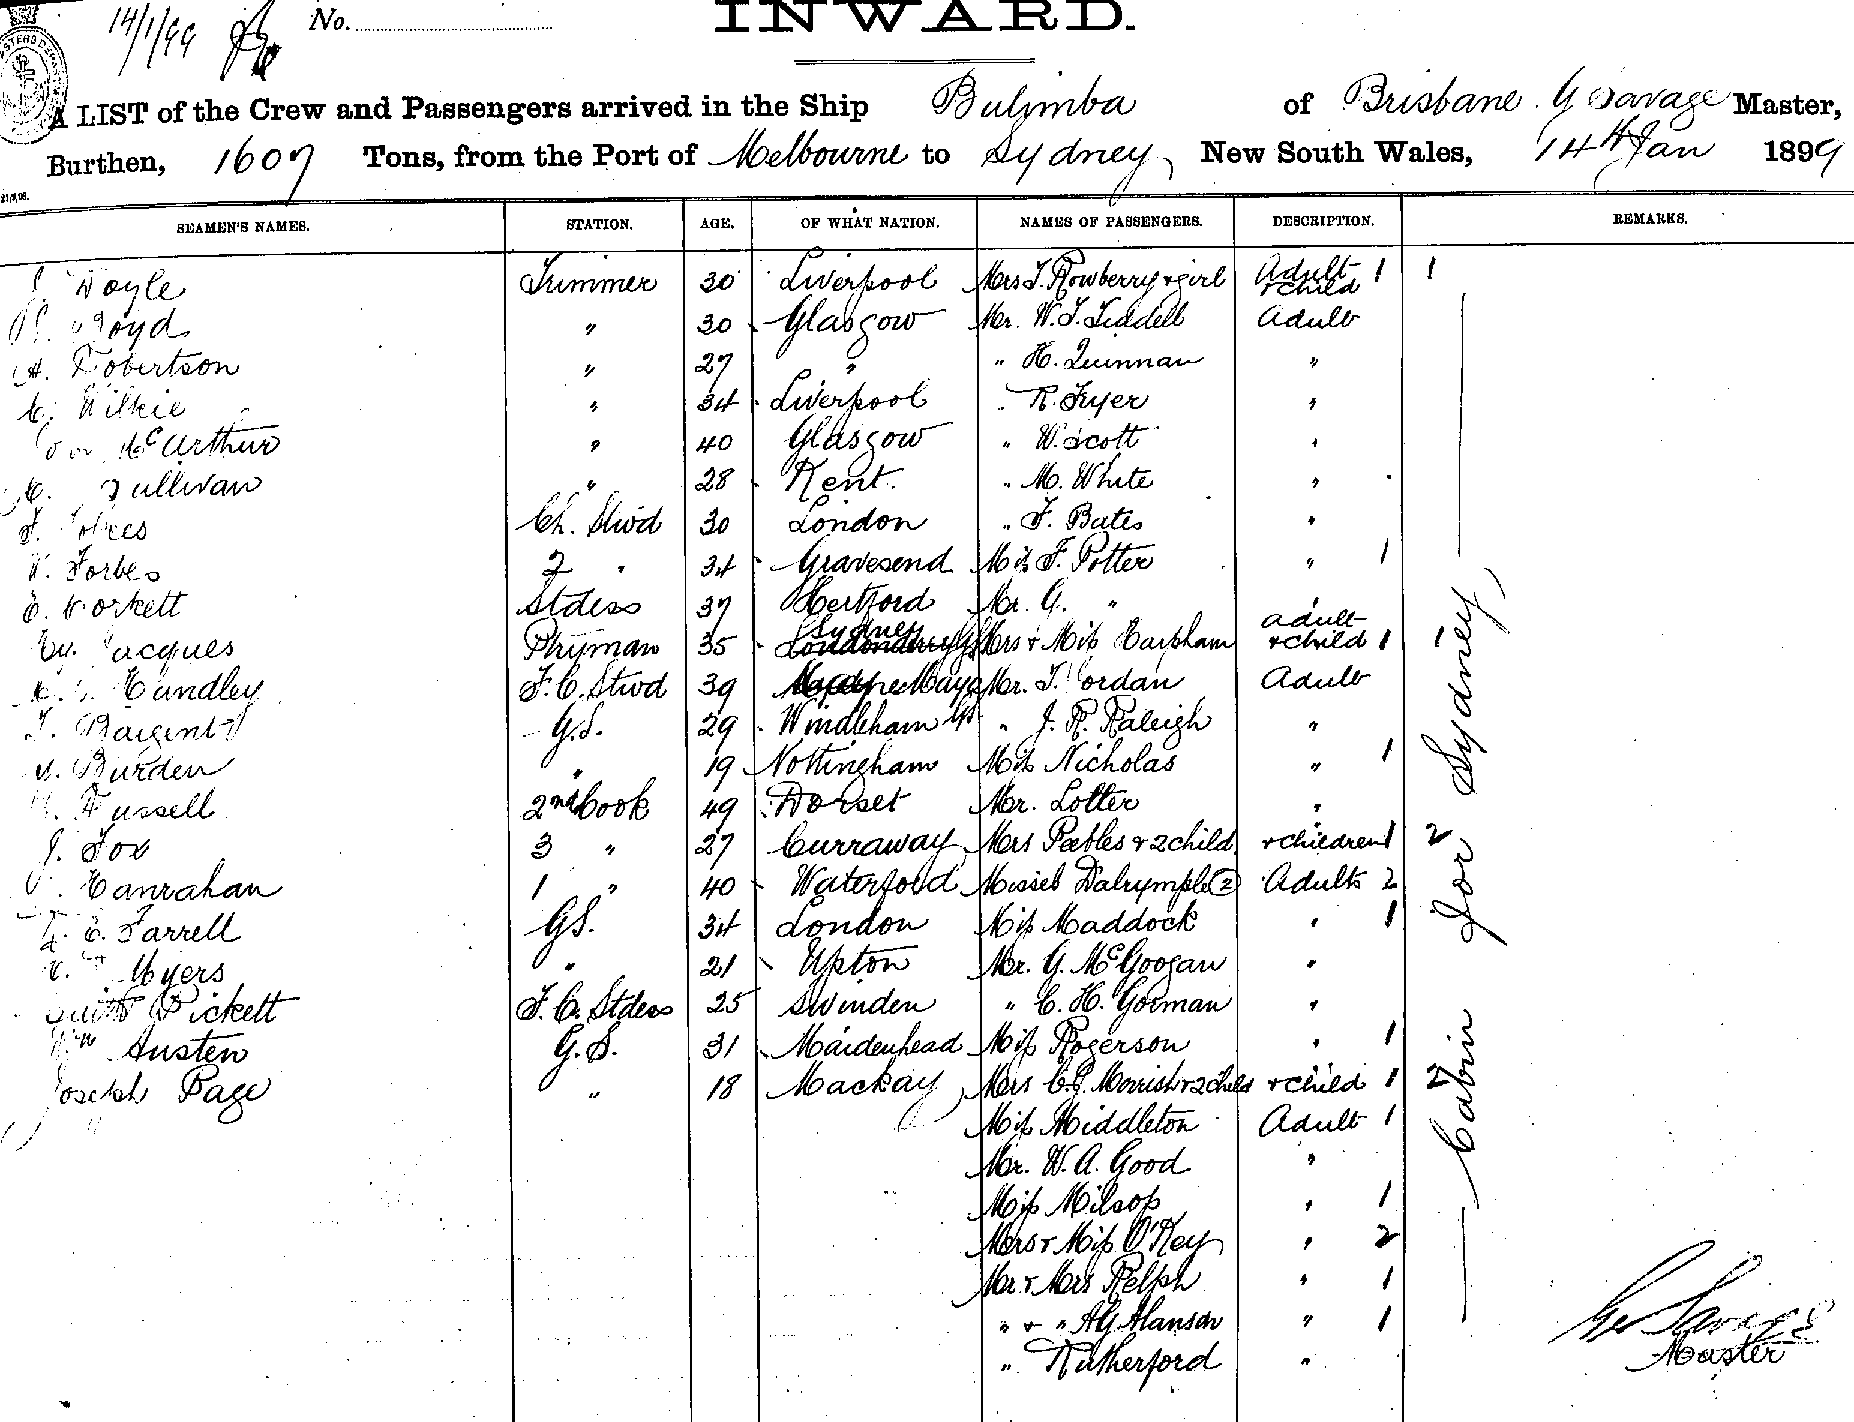 14/1/99 No.
INWARD.
A LIST of the Crew and Passengers arrived in the Ship Bulimba of Brisbane. G Savage Master,
Burthen, 1607 Tons, from the Port of Melbourne to Sydney, New South Wales, 14th Jan 1899
SEAMEN'S NAMES. STATION. AGE. OF WHAT NATION. NAMES OF PASSENGERS. DESCRIPTION. REMARKS.
J. Doyle Trimmer 30 Liverpool Mrs T. Rowberry & girl Adult & child 1 1
Boyd " 30 Glasgow Mr. W. T. Liddell Adult
A. Robertson " 27 " " H. Quinnan "
Wilkie " 34 Liverpool R. Fryer "
McArthur " 40 Glasgow " W. Scott "
Sullivan " 28 Kent. " M. White "
F. Ch. Stwd 30 London " F. Bates "
Forbes 2 " 34 Gravesend Miss F. Potter " 1
E. Corkett Stdess 37 Hertford Mr. G. " "
Hy. Jacques Ptryman 35 Sydney Mrs & Miss Earpham adult & child 1 1
Hundley F. C. Stwd 39 Mayo Mr. T. Jordan Adult
T. Bargent G.S. 29 Windleham " J. R. Raleigh "
Burden " 19 Nottingham Miss Nicholas " 1
Russell 2nd Cook 49 Dorset Mr. Lotter "
J. Fox 3 " 27 Curraway Mrs Peebles & 2 child. & children 1 2
Hanrahan 1 " 40 Waterford Misses Dalrymple (2) Adults 2
E. Farrell GS. 34 London Miss Maddock " 1
Myers " 21 Upton Mr. G. McGoogan "
Pickett F. C. Stdess 25 Swinden " C. H. Gorman "
Wm Austen G. S. 31 Maidenhead Miss Rogerson " 1
Joseph Page " 18 Mackay Mrs C. G. Morrish & 2 child & child 1 2
Miss Middleton Adult 1
Mr. W. A. Good "
Miss Milsop " 1
Mrs & Miss O'Key " 2
Mr & Mrs Relph " 1
" & " A G Hanson " 1
" Rutherford "
Cabin for Sydney
Geo Savage
Master